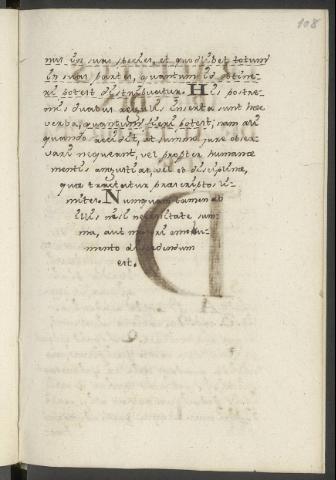 108
nus in suas species, et quodlibet totum
in suas partes, quantum id obtine-
ri poterit distribuatur. His postre-
mis duabus regulis inserta sunt haec
verba, quantum fieri poterit, nam ali
quando accidit, ut summo jure obser-
vari nequeant, vel propter humanae
mentis angustiam, vel et disciplinae,
quae tractatur praescriptos li-
mites. Numquam tamen ab
illis nisi necessitate sum-
ma, aut majori emolu-
mento discedendum
est.